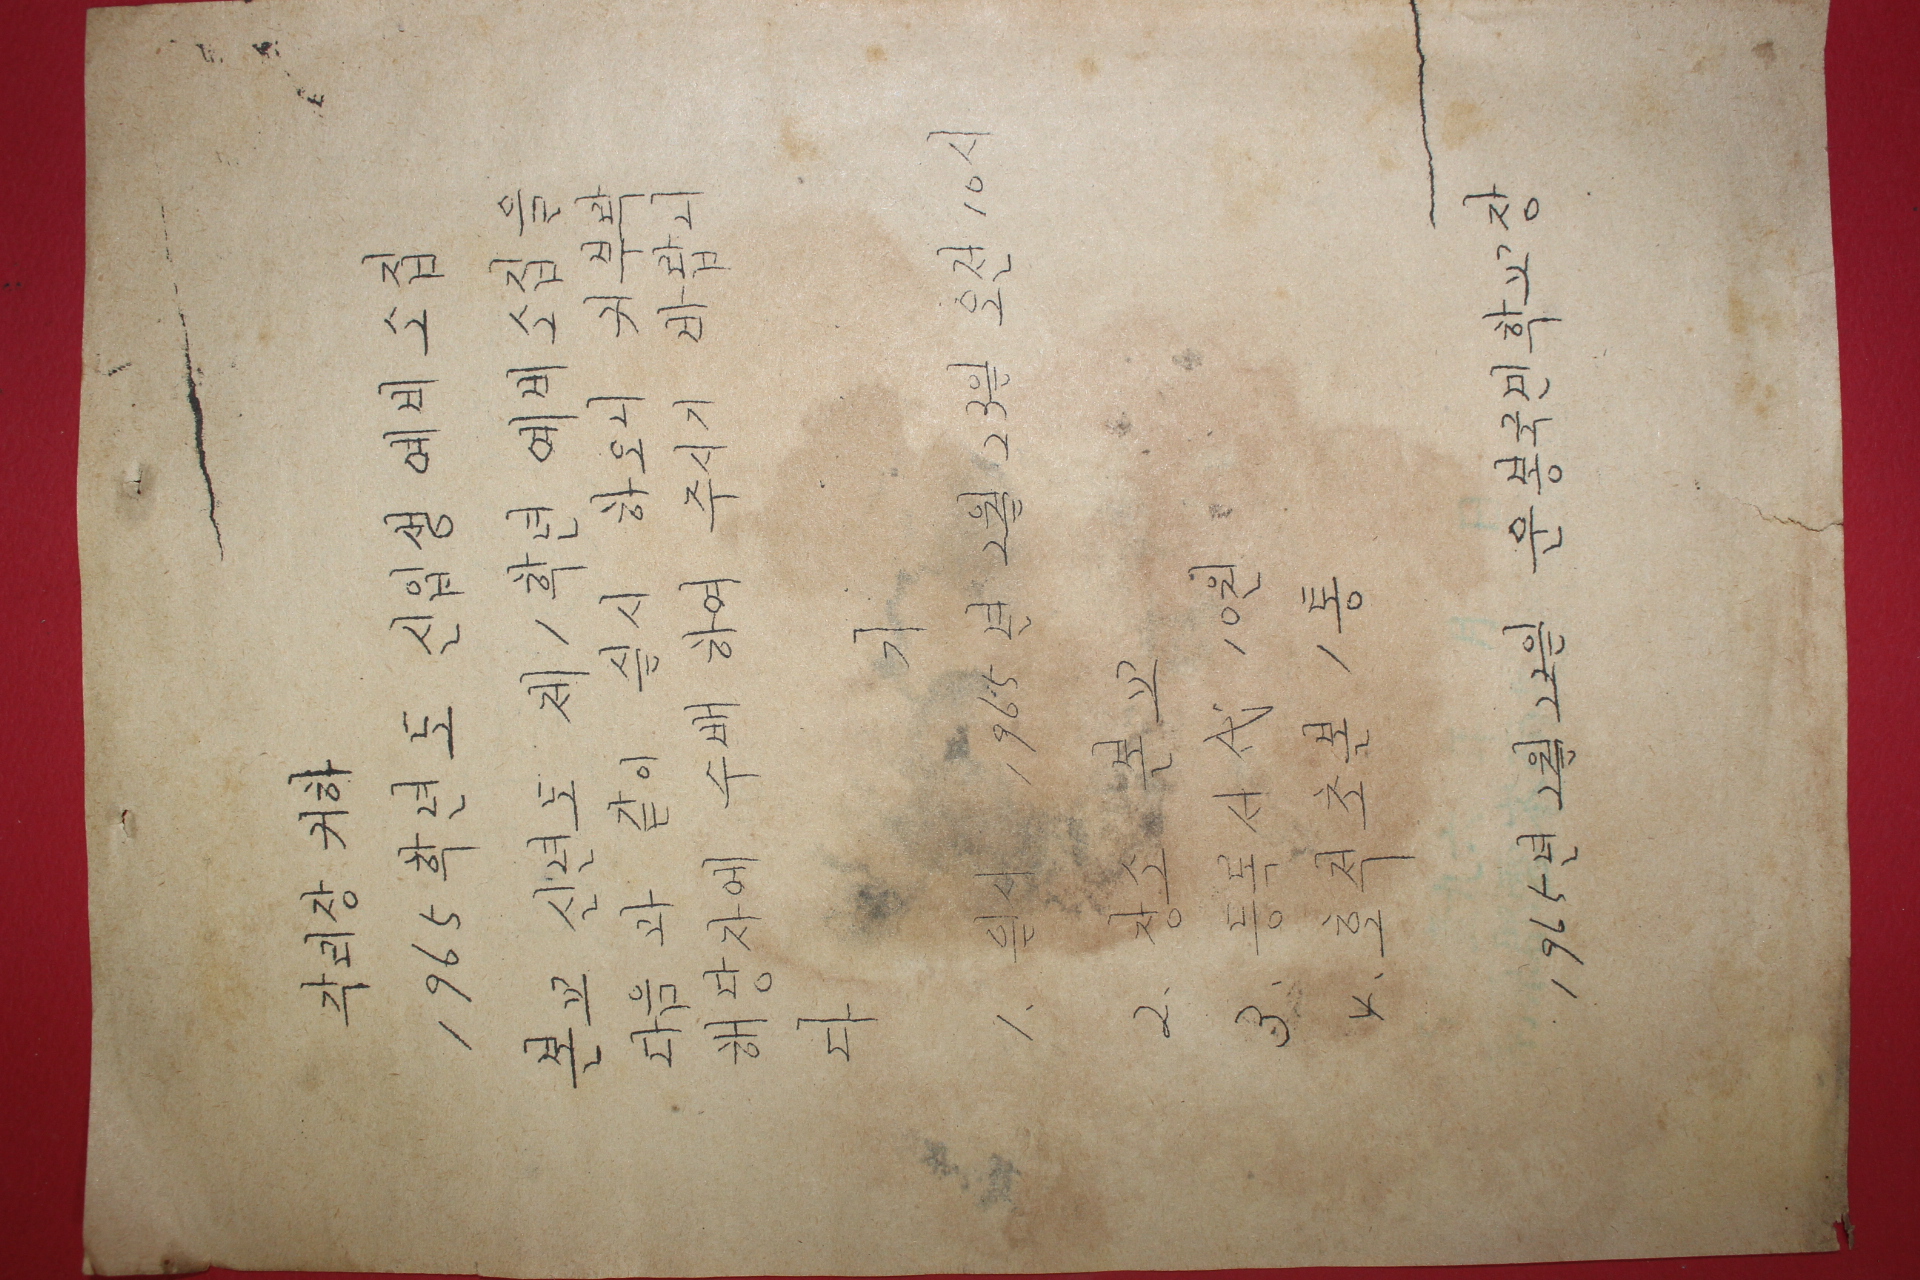 각리장 귀하
1965학년도 신입생 예비 소집
본교 신년도 제1학년 예비 소집을
다음과 같이 실시 하오니 귀 부락
해당자에 수배하여 주시기 바랍니
다
기
1. 일시 1965년 2월 23일 오전 10시
2. 장소 본교
3. 등록서代 10원
4. 호적초본 1통
1965년 2월 22일 운봉국민학교장